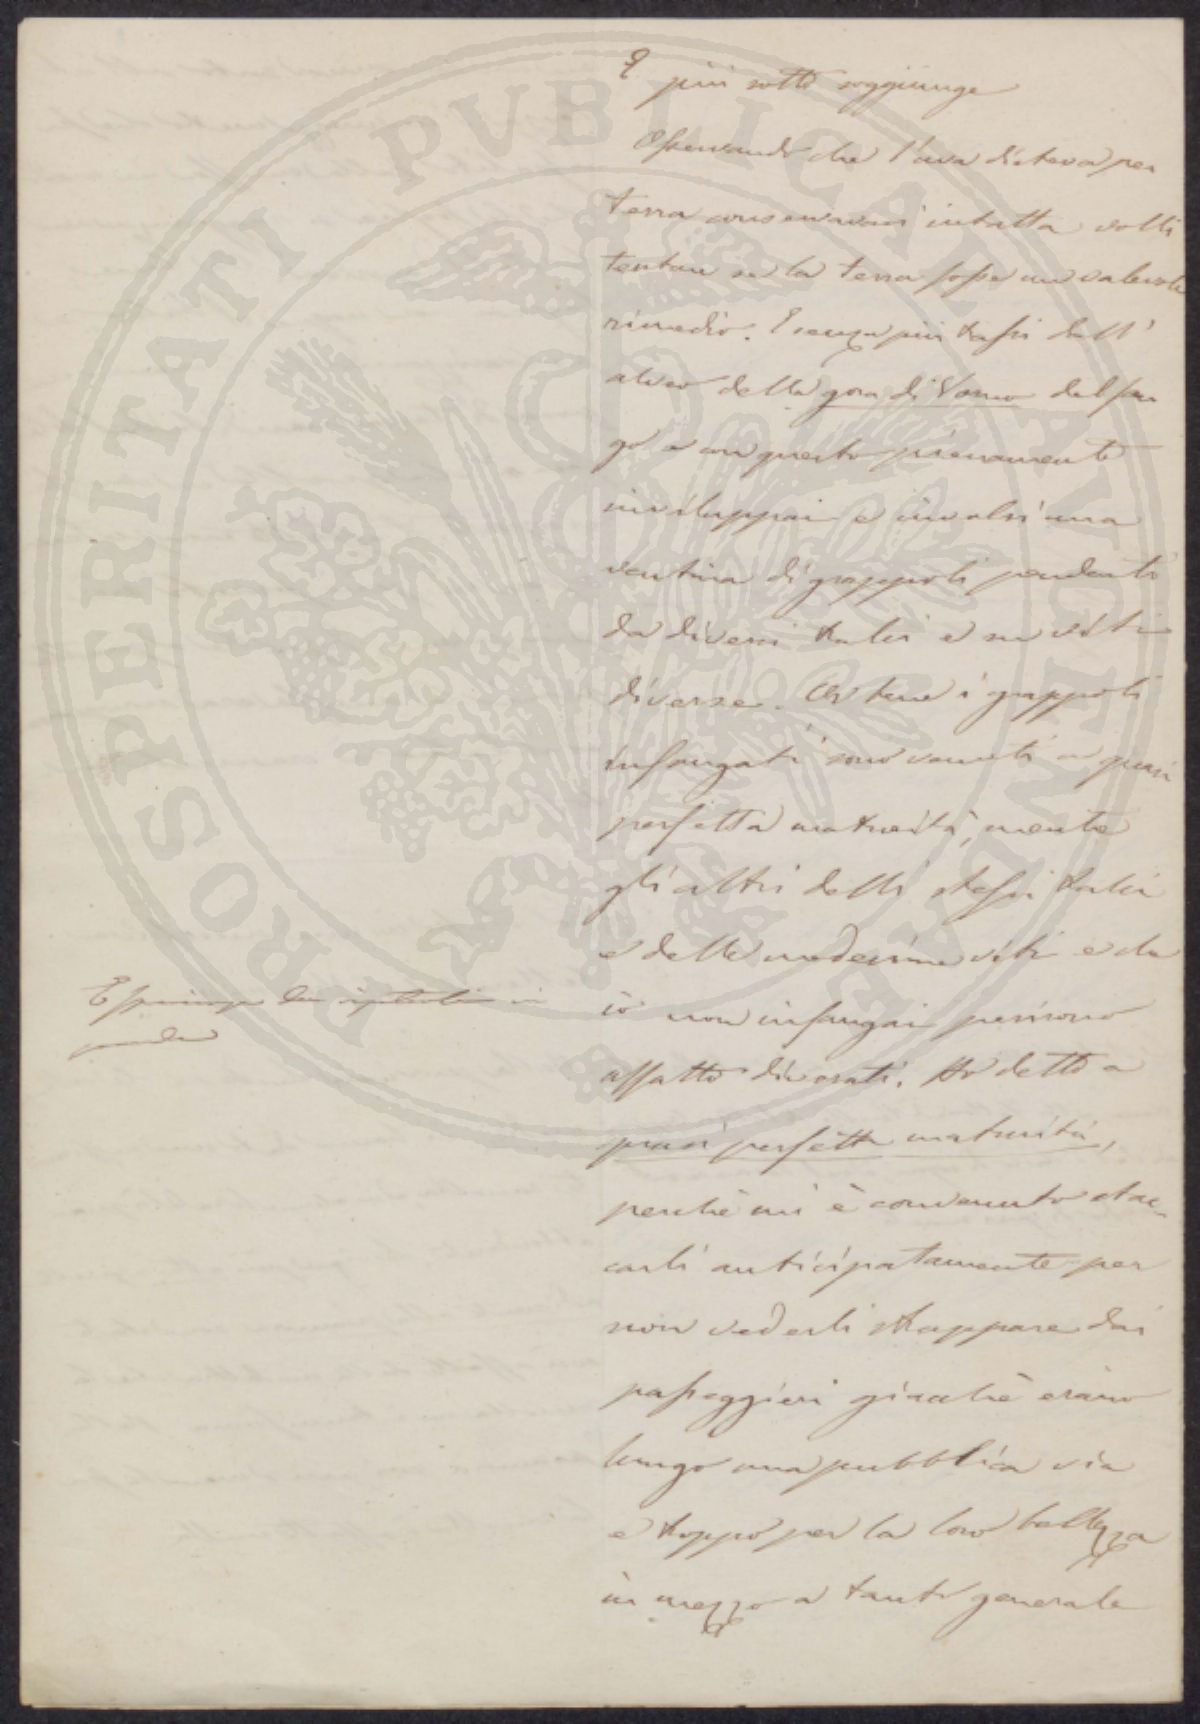 E
più sotto soggiunge
Osservando che l'uva distesa per
terra conservavasi intatta volli
tentare se la terra fosse un valevole
rimedio. E senza più trassi dall'
alveo della gora di Vorno del fan
go e con questo pienamente
inviluppai e involsi una
ventina di grappoli pendenti
da diversi tralci e su viti
diverse. Or bene i grappoli
infangati sono venuti a quasi
perfetta maturità, mentre
gli altri delli stessi tralci
e delle medesime viti e che
io non infangai perirono
affatto divorati. Ho detto a
quasi perfetta maturità,
perchè mi è convenuto stac-
carli anticipatamente per
non vederli strappare dai
passeggieri giacchè erano
lungo una pubblica via
e troppo per la loro bellezza
in mezzo a tanto generale
PROSPERITATI PVBLICAE AVGENDAE